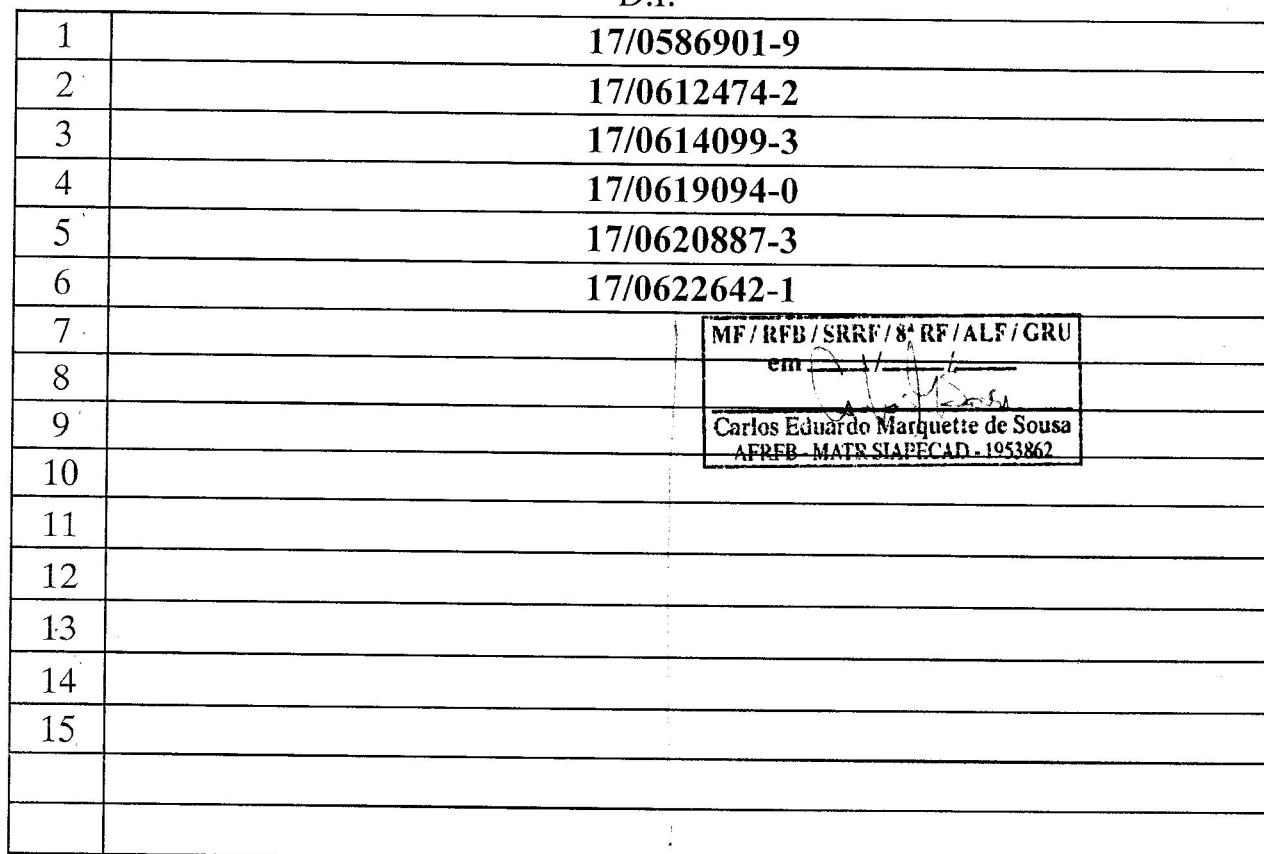 D.I.
1 17/0586901-9
2 17/0612474-2
3 17/0614099-3
4 17/0619094-0
5 17/0620887-3
6 17/0622642-1
7
MF / RFB / SRRF / 8ª RF / ALF / GRU
em / /
8
9
Carlos Eduardo Marquette de Sousa
AFRFB - MATR SIAPECAD - 1953862
10
11
12
13
14
15